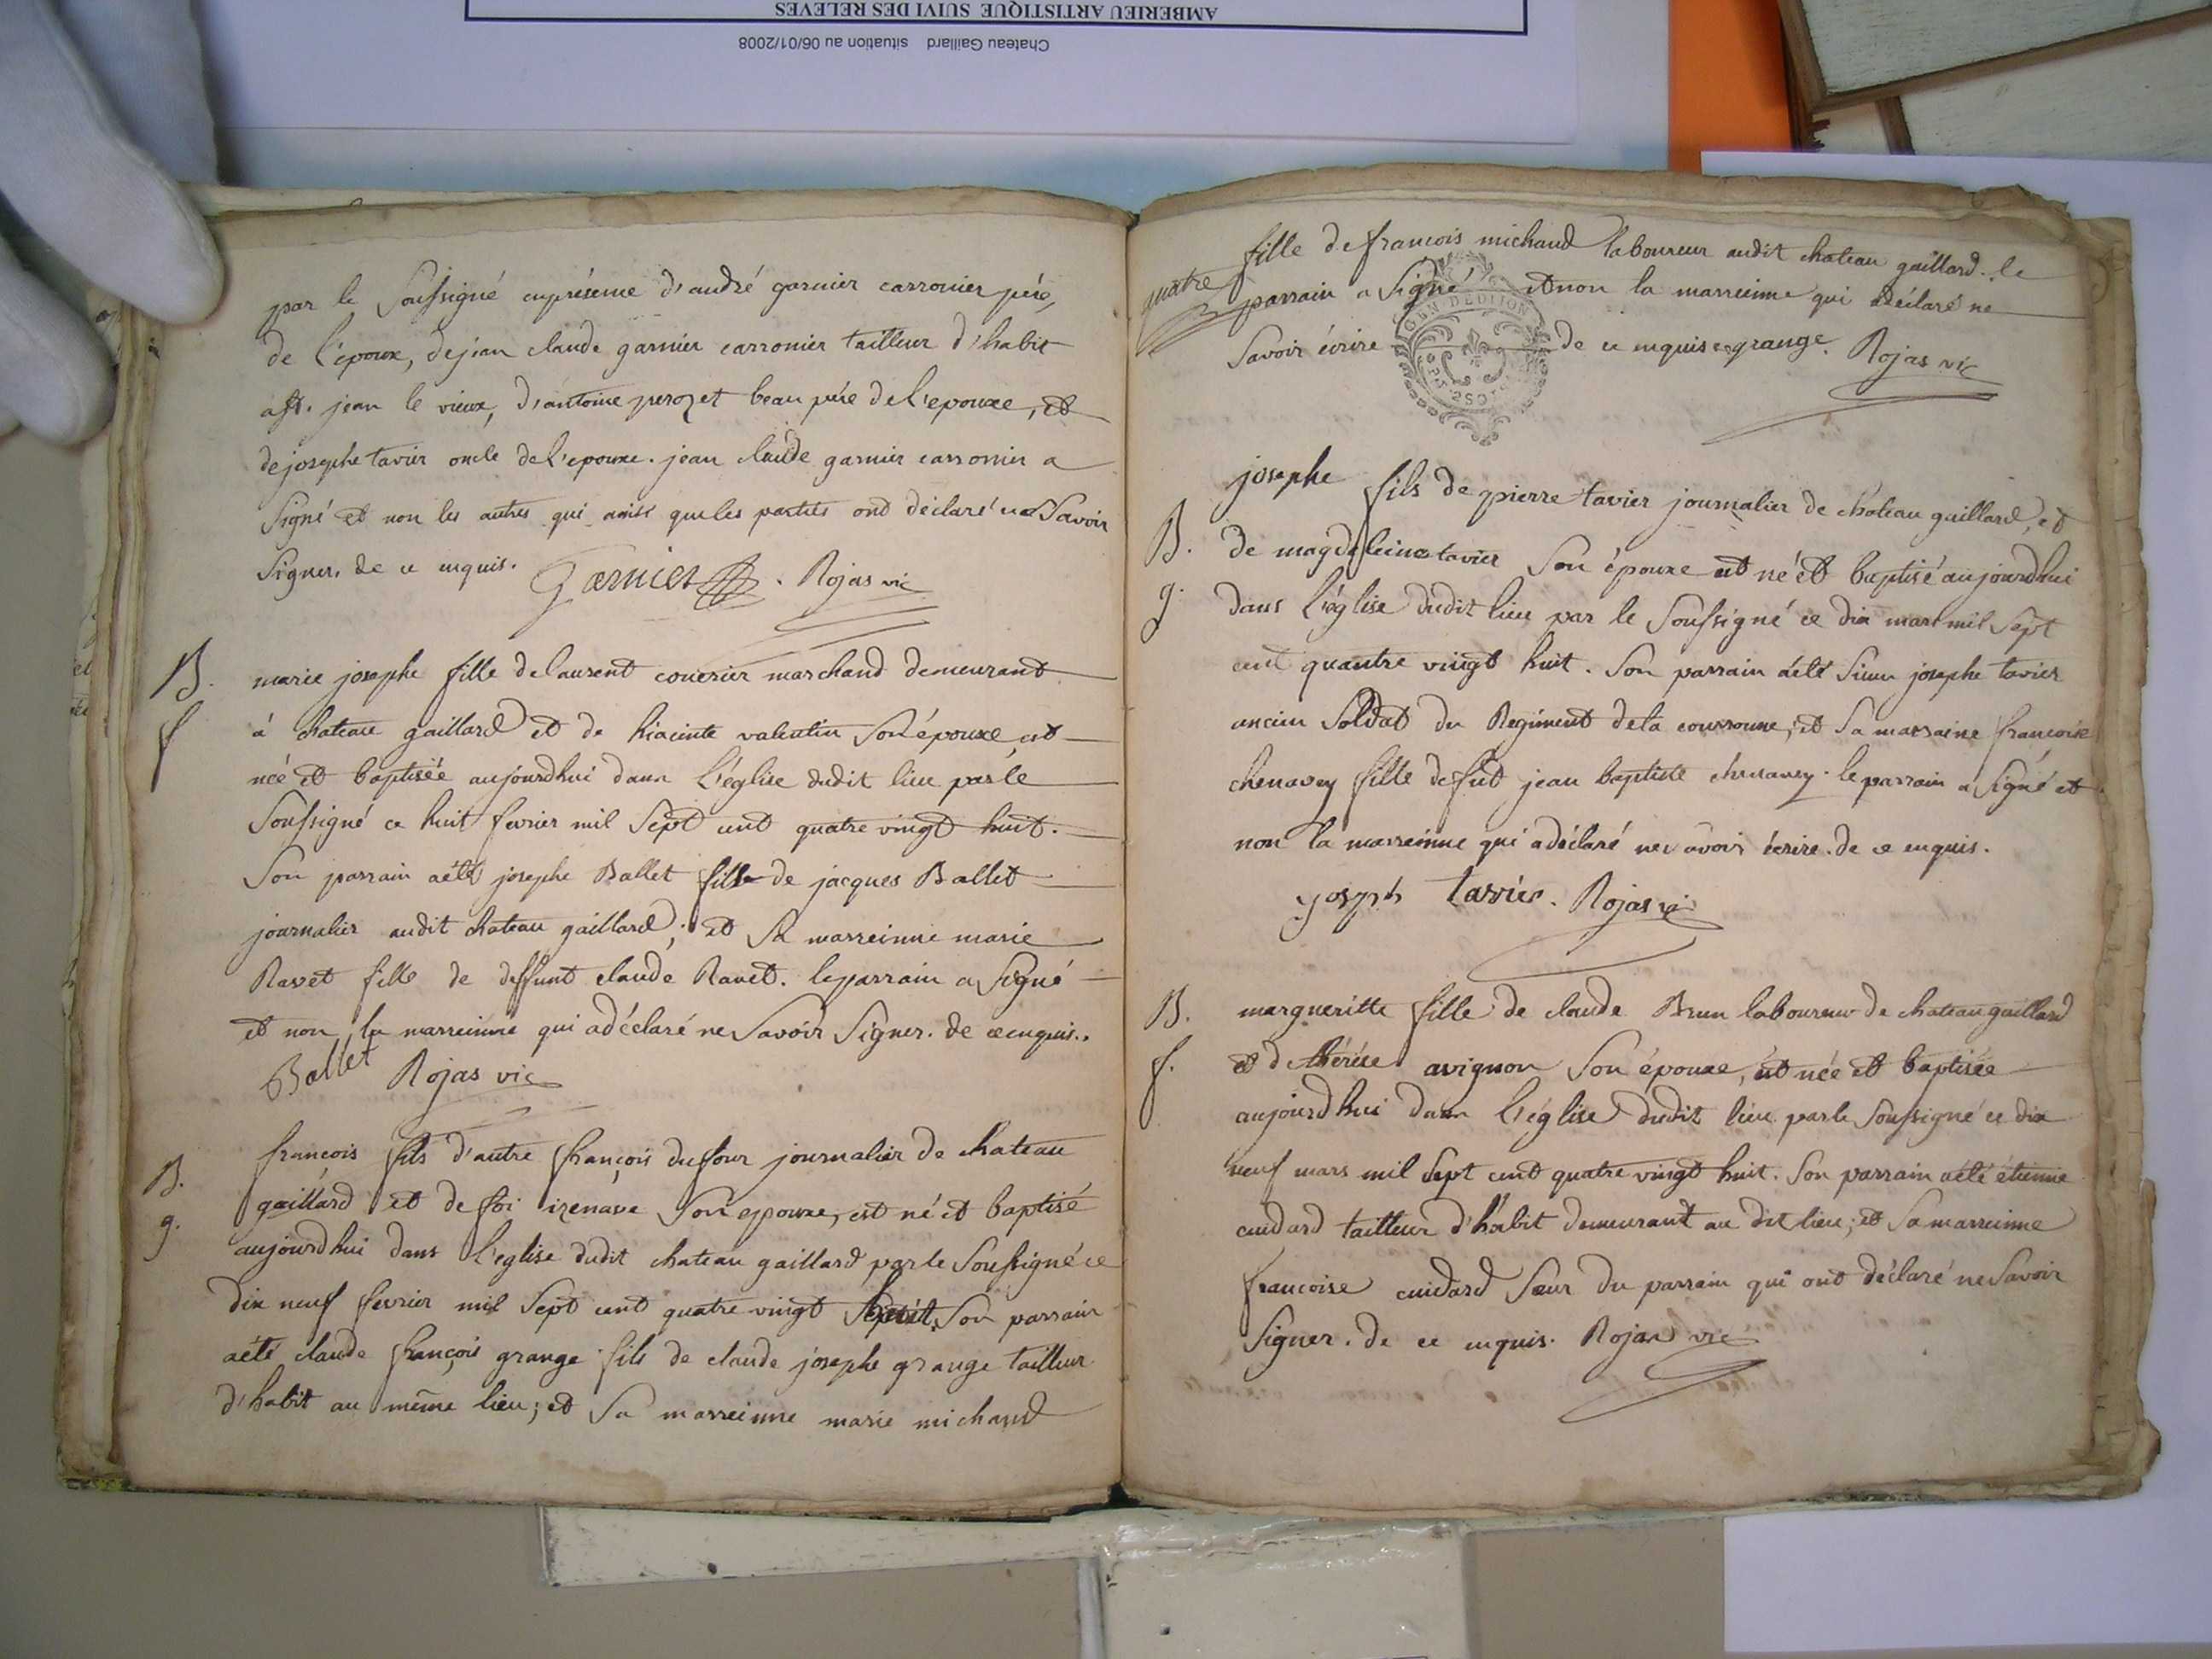 AMBERIEU ARTISTIQUE SUIVI DES RELEVES
Chateau Gaillard situation au 06/01/2008
par le soussigné enprésence d'andré garnier carronier père,
de l'époux, dejean claude garnier carronier tailleur d'habit
jean le vieux, d'antoine perozet beau père del'epouxe, et
dejosephe tavier oncle del'epouxe. jean claude garnier carronier a
signé et non les autres qui ainsi queles parties ont déclaré ne savoir
signer. de ce enquis. Garnier. Rojas vic
B. marie josephe fille delaurent couerier marchand demeurant
f à chateau gaillard et de hiacinte valentin son épouxe, est
née et baptisée aujourdhui dans l'église dudit lieu parle
soussigné ce huit fevrier mil sept cent quatre vingt huit.
Son parrain aété josephe Ballet fils de jacques Ballet
journalier audit chateau gaillard; et sa marreinne marie
Ravet fille de deffunt claude Ravet. leparrain a signé
et non la marreinne qui adéclaré ne savoir signer. de ce enquis.
Ballet Rojas vic
francois fils d'autre françois duffour journalier de chateau
B. gaillard et de foi izenave son epouxe, est né et baptisé
g. aujourdhui dans l'eglise dudit chateau gaillard parle soussigné ce
dix neuf fevrier mil sept cent quatre vingt huit. Son parrain
aété claude françois grange fils de claude josephe grange tailleur
d'habit au même lieu; et sa marreinne marie michaud
fille de francois michaud laboureur audit chateau gaillard. le
quatre parrain a signé et non la marreinne qui adéclaré ne
savoir écrire de ce enquise grange. Rojas vic
GEN DE DIJON
josephe fils de pierre tavier journalier de chateau gaillard, et
B. de magdeleine tavier son épouxe est né et baptisé aujourdhui
g. dans l'église dudit lieu par le soussigné ce dix mars mil sept
cent quantre vingt huit. Son parrain aété sieur josephe tavier
ancien soldat du Regiment dela courronne; et sa marraine francoise
chenavey fille defut jean baptiste chenavey. le parrain a signé et
non la marreinne qui adéclaré ne savoir écrire. de ce enquis.
yoseph tavier. Rojas vic
B. margueritte fille de claude Brun laboureur de chateau gaillard
f. et de thérése avignon son épouxe, est née et baptisée
aujourdhui dans l'église dudit lieu parle soussigné ce dix
neuf mars mil sept cent quatre vingt huit. Son parrain aété étienne
cuidard tailleur d'habit demeurant au dit lieu; et sa marreinne
francoise cuidard sœur du parrain qui ont déclaré ne savoir
signer. de ce enquis. Rojas vic